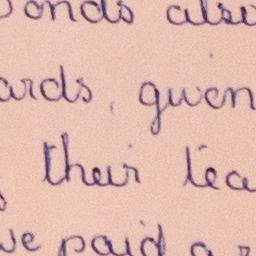 onds also
ards, given
their tea
ve paid a